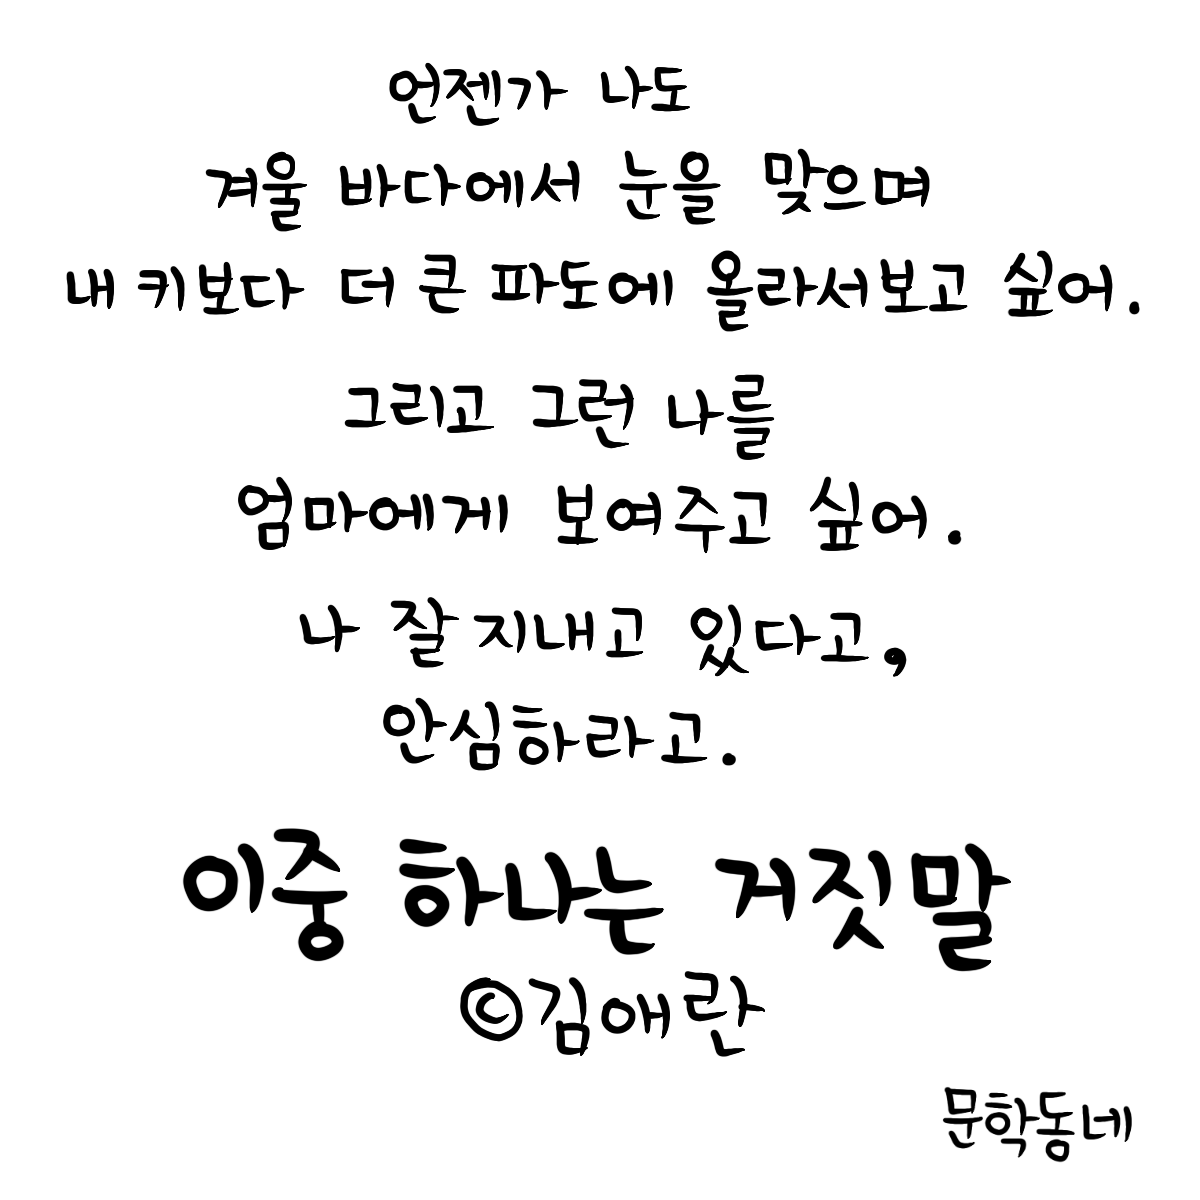 언젠가 나도
겨울 바다에서 눈을 맞으며
내 키보다 더 큰 파도에 올라서보고 싶어.
그리고 그런 나를
엄마에게 보여주고 싶어.
나 잘 지내고 있다고,
안심하라고.
이중 하나는 거짓말
©김애란
문학동네